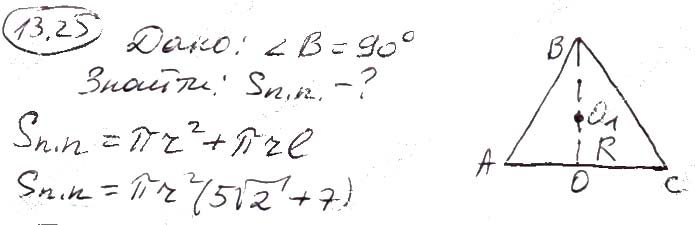 13.25
Дано: ∠B = 90°
Знайти: Sп.п. - ?
Sп.п = πr² + πrl
Sп.п = πr²(5√2 + 7)
B
O₁
A
R
O
C